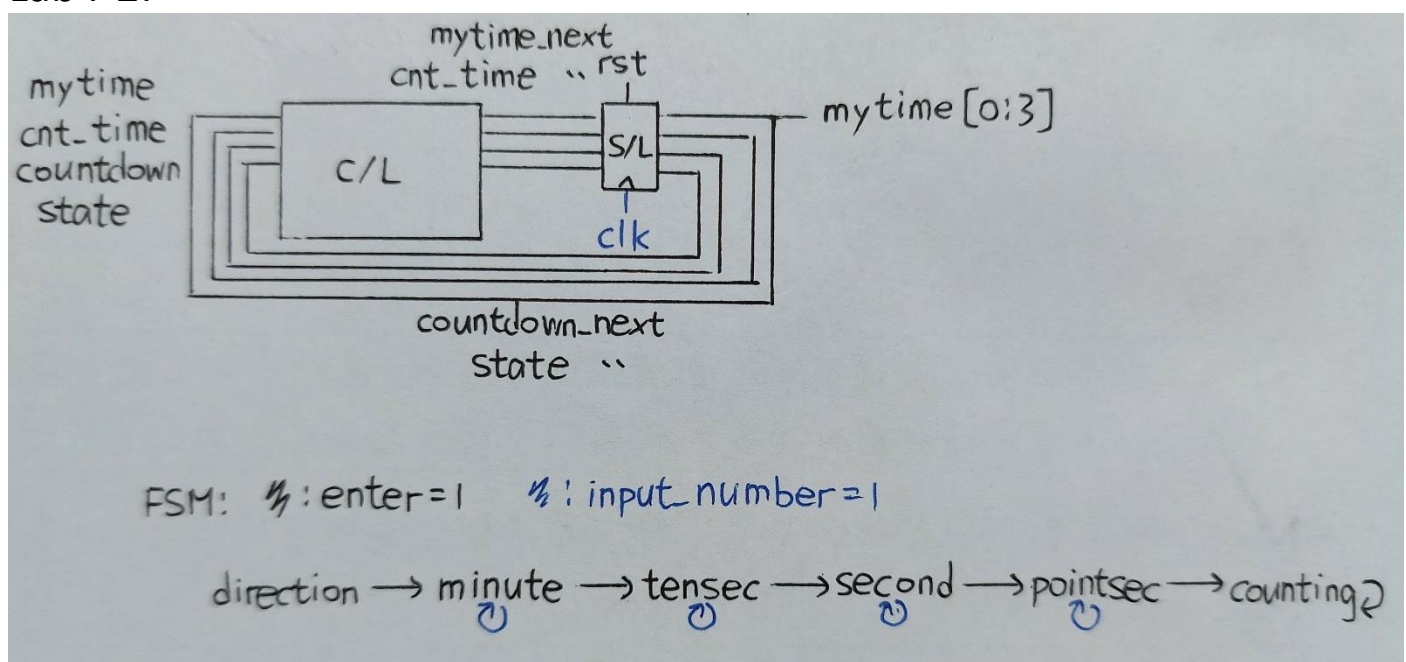 mytime_next
cnt_time 〃 rst
mytime
cnt_time
countdown
state
C/L
S/L
clk
mytime[0:3]
countdown_next
state 〃
FSM: : enter=1 : input_number=1
direction → minute → tensec → second → pointsec → counting